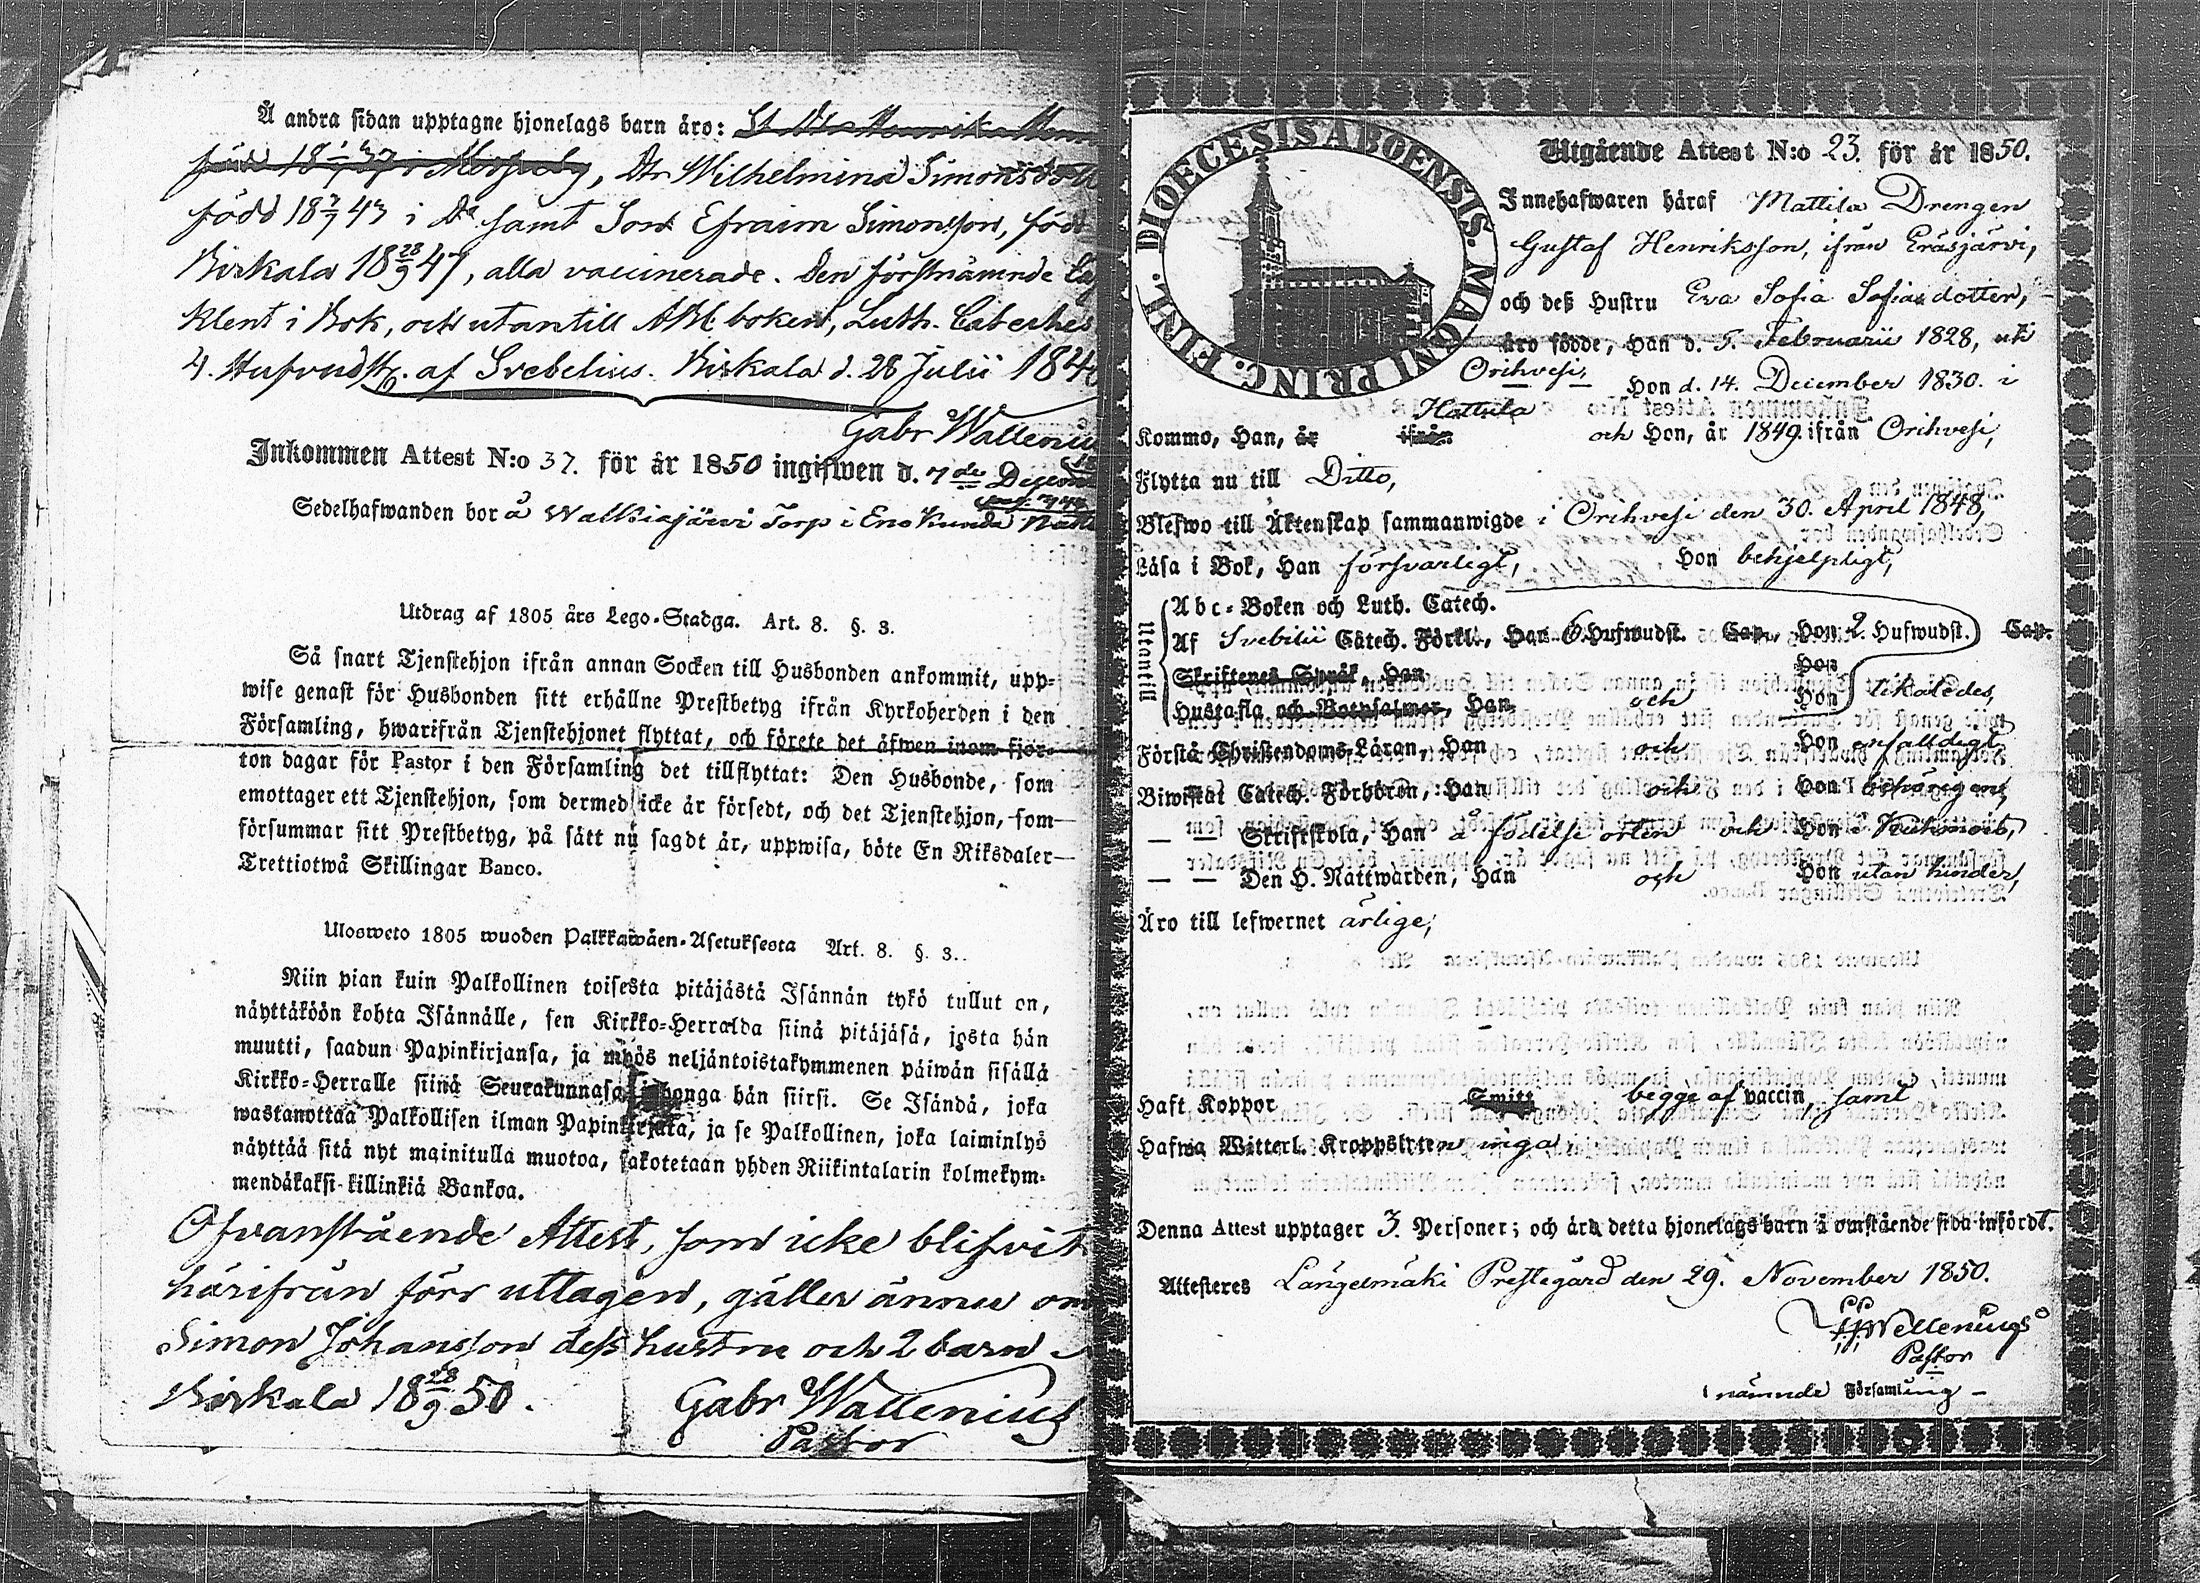 Å andra sidan upptagne hjonelags barn äro: St. Dtr Henrika
född 18 37 i, Dtr Wilhelmina Simonsdotter
född 18 7/7 43 i Do samt Son Efraim Simonsson, född
Birkala 18 28/9 47, alla vaccinerade. Den förstnämnde
klent i Bok, och utantill ABC boken, Luth. Cateches
4. Hufvudst. af Svebelius. Birkala d. 28 Julii 184
Gabr Wallenius
Inkommen Attest N:o 37. för år 1850 ingifwen d. 7de Decem
Sedelhafwanden bor å Walkiajärvi Torp i Enokunda
Utdrag af 1805 års Lego-Stadga. Art. 8. §. 3.
Så snart Tjenstehjon ifrån annan Socken till Husbonden ankommit, upp-
wise genast för Husbonden sitt erhållne Prestbetyg ifrån Kyrkoherden i den
Församling, hwarifrån Tjenstehjonet flyttat, och förete det äfwen inom fjor-
ton dagar för Pastor i den Församling det tillflyttat: Den Husbonde, som
emottager ett Tjenstehjon, som dermed icke är försedt, och det Tjenstehjon, som
försummar sitt Prestbetyg, på sätt nu sagdt är, uppwisa, böte En Riksdaler
Trettiotwå Skillingar Banco.
Ulosweto 1805 wuoden Palkkawäen-Asetuksesta Art. 8. §. 3.
Niin pian kuin Palkollinen toisesta pitäjästä Isännän tykö tullut on,
näyttäköön kohta Isännälle, sen Kirkko-Herralda siinä pitäjäsä, josta hän
muutti, saadun Papinkirjansa, ja myös neljäntoistakymmenen päiwän sisällä
Kirkko-Herralle siinä Seurakunnasa johonga hän siirsi. Se Isändä, joka
wastanottaa Palkollisen ilman Papinkirjata, ja se Palkollinen, joka laiminlyö
näyttää sitä nyt mainitulla muotoa, sakotetaan yhden Riikintalarin kolmekym-
mendäkaksi killinkiä Bankoa.
Ofvanstående Attest, som icke blifvit
härifrån förr uttagen, gäller ännu om
Simon Johansson dess hustru och 2 barn
Birkala 18 28/9 50.
Gabr Wallenius
Pastor
DIOECESIS ABOENSIS. MAGNI PRINC. FINL.
Utgående Attest N:o 23. för år 1850.
Innehafwaren häraf Mattila Drengen
Gustaf Henriksson, ifrån Eräsjärvi,
och deß Hustru Eva Sofia Sofiasdotter,
äro födde, Han d. 5. Februarii 1828, uti
Orihvesi, Hon d. 14. December 1830. i
Hattula
Kommo, Han, år ifrån och Hon, år 1849. ifrån Orihvesi,
Flytta nu till Ditto,
Blefwo till Äktenskap sammanwigde i Orihvesi den 30. April 1848,
Läsa i Bok, Han försvarligt, Hon behjelpligt,
Utantill
Abc-Boken och Luth. Catech.
Af Svebilii Catech. Förkl., Han 6 Hufwudst. Cap., Hon 2. Hufwudst. Cap.
Skriftenes Språk, Han Hon
Hustafla och Botpsalmer, Han och Hon likaledes,
Förstå Christendoms-Läran, Han och Hon enfaldigt,
Biwistat Catech. Förhören, Han och Hon behörigen,
— — Skriftskola, Han å födelse orten och Hon i Kuhmois,
— — Den H. Nattwarden, Han och Hon utan hinder,
Äro till lefwernet ärlige,
Haft Koppor Smitt begge af vaccin, samt
Hafwa Witterl. Kroppslyten inga.
Denna Attest upptager 3. Personer; och äro detta hjonelags barn å omstående sida infördt.
Attesteres Längelmäki Prestegård den 29. November 1850.
Wellenius
Pastor
i nämnde Församling